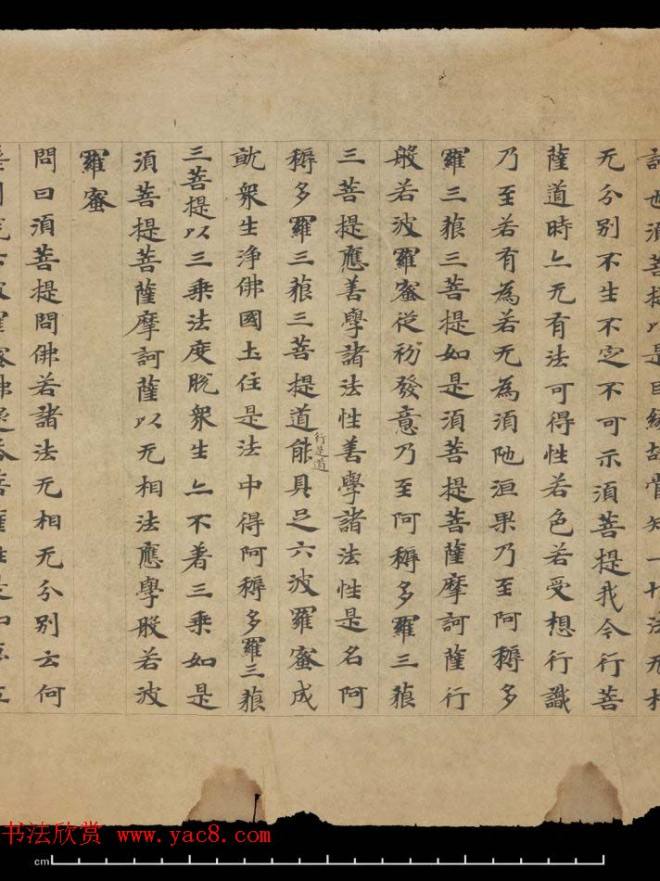 也須菩提以是因緣故當知一切法无相
无分別不生不定不可示須菩提我今行菩
薩道時亦无有法可得性若色若受想行識
乃至若有為若无為須陁洹果乃至阿耨多
羅三藐三菩提如是須菩提菩薩摩訶薩行
般若波羅蜜從初發意乃至阿耨多羅三藐
三菩提應善學諸法性善學諸法性是名阿
耨多羅三藐三菩提道能行是道具足六波羅蜜成
就衆生淨佛國土住是法中得阿耨多羅三藐
三菩提以三乘法度脫衆生亦不著三乘如是
須菩提菩薩摩訶薩以无相法應學般若波
羅蜜
問曰須菩提問佛若諸法无相无分別云何
书法欣赏 www.yac8.com
cm